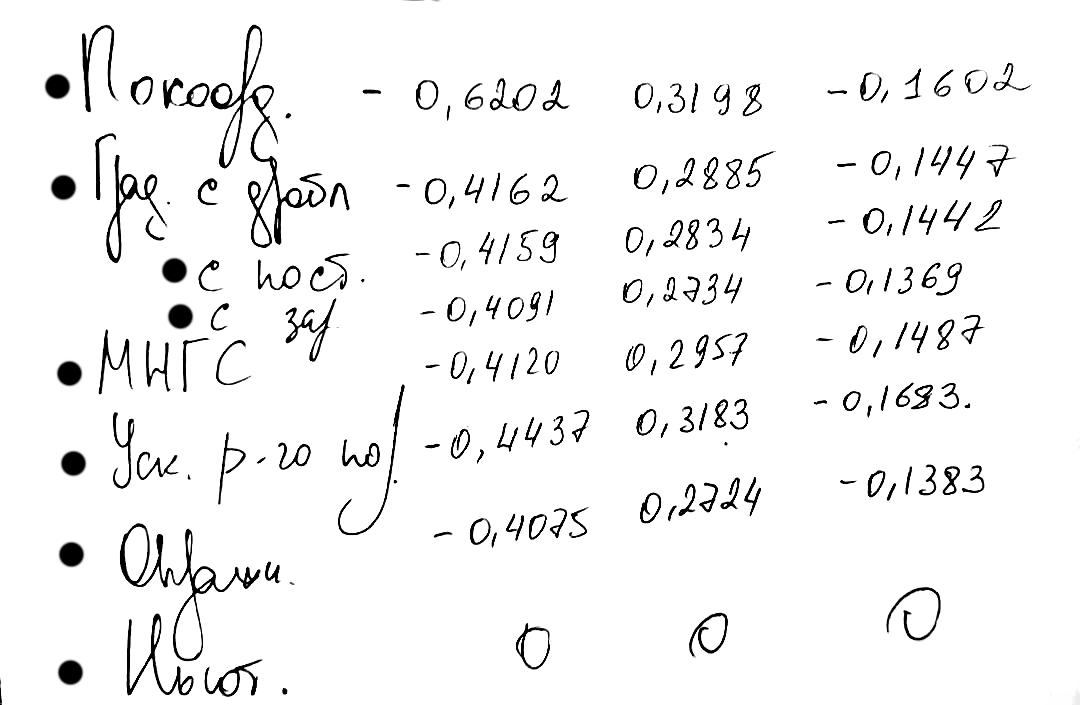 • Покоорд. - 0,6202 0,3198 -0,1602
• Град. с дробл -0,4162 0,2885 -0,1447
• с пост. -0,4159 0,2834 -0,1442
• с зар -0,4091 0,2734 -0,1369
• МНГС -0,4120 0,2957 -0,1487
• Уск. р-го пор. -0,4437 0,3183 -0,1683.
• Овражн. -0,4075 0,2724 -0,1383
• Ньют. 0 0 0